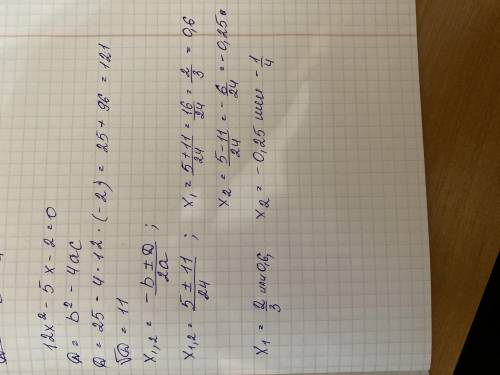 12x² - 5x - 2 = 0
D = b² - 4ac
D = 25 - 4 · 12 · (-2) = 25 + 96 = 121
√D = 11
x₁,₂ = -b ± D / 2a ;
x₁,₂ = 5 ± 11 / 24 ; x₁ = 5 + 11 / 24 = 16 / 24 = 2 / 3 = 0,6
x₂ = 5 - 11 / 24 = - 6 / 24 = - 0,25
x₁ = 2 / 3 или 0,6, x₂ = - 0,25 или - 1 / 4